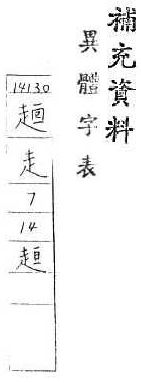 補充資料
異體字表
14130
趙
走
7
14
趄